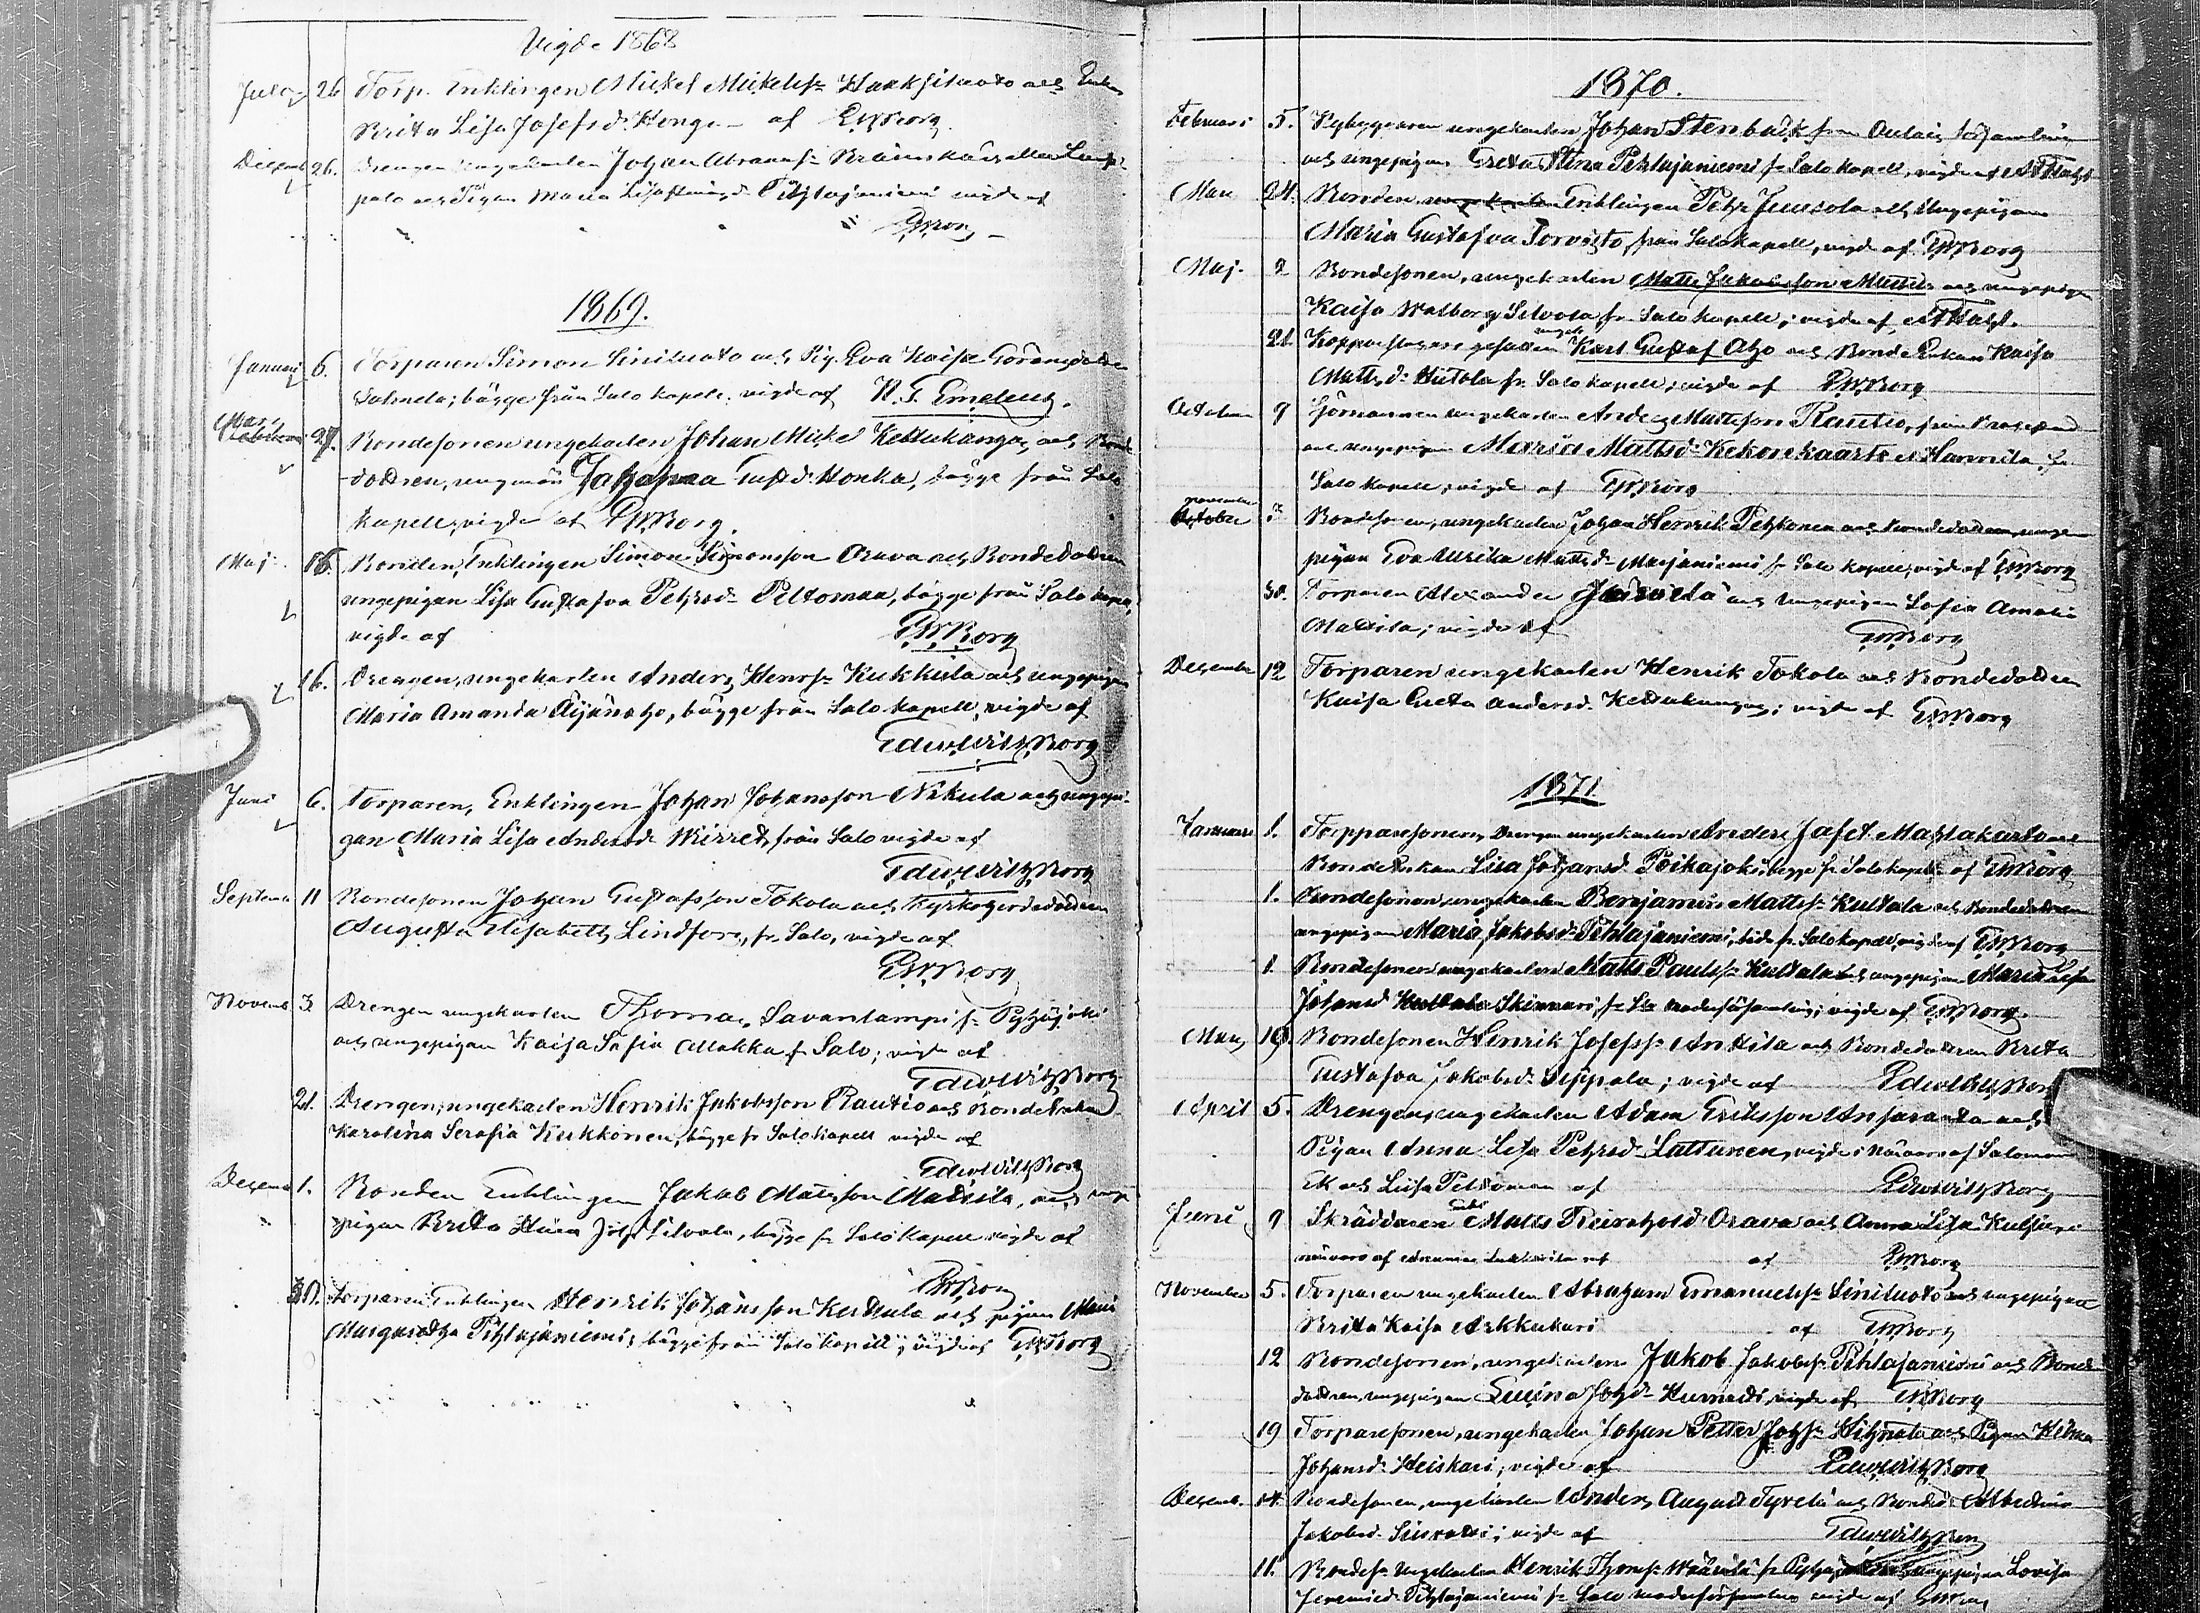 Vigde 1868
July 26 Torp. Enklingen Mickel Mickelss Haaksiluoto och Enkan
Brita Lisa Josefsd. Konga af EWBorg
Decemb 26. Drengen ungekarlen Johan Abramss
palo och Pigan Maria Lisa Pihlajaniemi vigde af
EWBorg
1869.
Januarj 6. Torparen Simon Siniluoto och Pig. Eva Kaisa Göransdotter
Salmela; bägge från Salo kapell. vigde af
Mars 27. Bondesonen ungekarlen Johan Mickel Keltukangas och Bonde
dottren, ungmön Johanna Gustd. Honka, bägge från Salo
kapell, vigde af EWBorg.
Maj. 16. Bonden, Enklingen Simon Simonsson Orava och Bondedottren
ungepigan Lisa Gustafva Pehrsd. Peltomaa, bägge från Salo kapell,
vigde af EWBorg
16. Drengen, ungekarlen Anders Henrss Kukkula och ungepigan
Maria Amanda Äijänaho, bägge från Salo kapell, vigde af
Edw Wilh Borg
Juni 6. Torparen, Enklingen Johan Johansson Nikula och ungepi-
gan Maria Lisa Andersd. Wirret, från Salo vigde af
Edw Wilh Borg
Septemb 11 Bondesonen Johan Gustafsson Tokola och Kyrkogårdsdottren
Augusta Elisabeth Lindfors, fr. Salo, vigde af
EWBorg
Novemb 3 Drengen ungekarlen Thomas Savanlampi fr Pyhäjoki
och ungepigan Kaisa Sofia Mokka fr Salo; vigde af
Edw Wilh Borg
21. Drengen, ungekarlen Henrik Jakobsson Rautio och Bonde Enkan
Karolina Serafia Kukkonen, bägge fr Salo kapell vigde af
Edw Wilh Borg
Decemb 1. Bonden Enklingen Jakob Matsson Mattila, och unge
pigan Brita Stina Johd Silvola, bägge fr Salo kapell vigde af
EWBorg
30. Torparen Enklingen Henrik Johansson Kultala och pigan Maria
Margaretha Pihlajaniemi, bägge från Salo kapell; vigde af EWBorg
1870.
Februari 5. Nybyggaren ungekarlen Johan Stenbäck från Oulais församling
och ungepigan Greta Stina Pihlajaniemi fr Salo kapell, vigde af
Mars 24. Bonden ungekarlen Enklingen Pehr Junsola och Ungepigan
Maria Gustafva Torvisto, från Salo kapell, vigde af EWBorg
Maj. 2 Bondesonen, ungekarlen Matts Jakobsson Mattila och ungepigan
Kaisa Walborg Silvola fr Salo kapell; vigde af
21 Kopparslagare gesällen ungk Karl Gustaf Aho och Bonde Enkan Kaisa
Mattsd. Hutola fr. Salo kapell; vigde af EWBorg
October 9 Sjömannen ungekarlen Anders Mattsson Rautio, från Brahestad
och ungepigan Maria Mattsd. Kekonekaarto Hannila, fr
Salo kapell; vigde af EWBorg
november October Bondesonen, ungekarlen Johan Henrik Pehkonen och Bondedottren, unge-
pigan Eva Ulrika Mattsd. Marjaniemi fr Salo kapell, vigde af EWBorg
30. Torparen Alexander och Ungepigan Sofia Amalia
Mattila; vigde af EWBorg
December 12 Torparen ungekarlen Henrik Tokola och Bondedottren
Kaisa Greta Andersd. Keltukangas; vigde af EWBorg
1871
Januari 1. Torpparesonen, Drengen ungekarlen Anders Jafet Mahlakarto och
Bonde Enkan Lisa Johansd. Poikajoki, bägge fr Salo kapell af EWBorg
1. Bondesonen, ungekarlen Benjamin Mattss Kultala och Bondedottren
ungepigan Maria Jakobsd. Pihlajaniemi, båda fr Salo kapell, vigde af EWBorg
1. Bondesonen ungekarlen Matts Paulss Kultala och ungepigan Maria Lisa
Johansd Kultala Skinnari, fr Salo moderförsamling; vigde af EWBorg.
Mars 19 Bondesonen Henrik Josefss Anttila och Bondedottren Brita
Gustafva Jakobsd. Seppala; vigde af Edw Wilh Borg
April 5. Drengen, ungekarlen Adam Eriksson Ansaranta och
Pigan Anna Lisa Pehrsd. Lattunen, vigde i närvaro af Salomon
och Lisa Peltomaa af Edw Wilh Borg
Juni 9 Skräddaren Matts Reinhold Orava och Anna Lisa
närvaro af af EWBorg
November 5. Torparen ungekarlen Abraham Emanuelss Siniluoto och ungepigan
Brita Kaisa Arkkukari af EWBorg
12 Bondesonen, ungekarlen Jakob Jakobss Pihlajaniemi och Bonde
dottren, ungepigan Lovina Johd. vigde af EWBorg
19 Torparesonen, ungekarlen Johan Petter Johss Hihnala och Pigan Helena
Johansd. Heiskari; vigde af Edw Wilh Borg
Decemb. Bondesonen, ungekarlen Anders August Tyrelä och Bonded. Albertina
Jakobsd. vigde af Edw Wilh Borg
11. Bondess Ungekarlen Henrik Thomss fr Pyhäjoki ungepigan Lovisa
Jeremiasd Pihlajaniemi fr Salo moderförsamling vigde af EWBorg